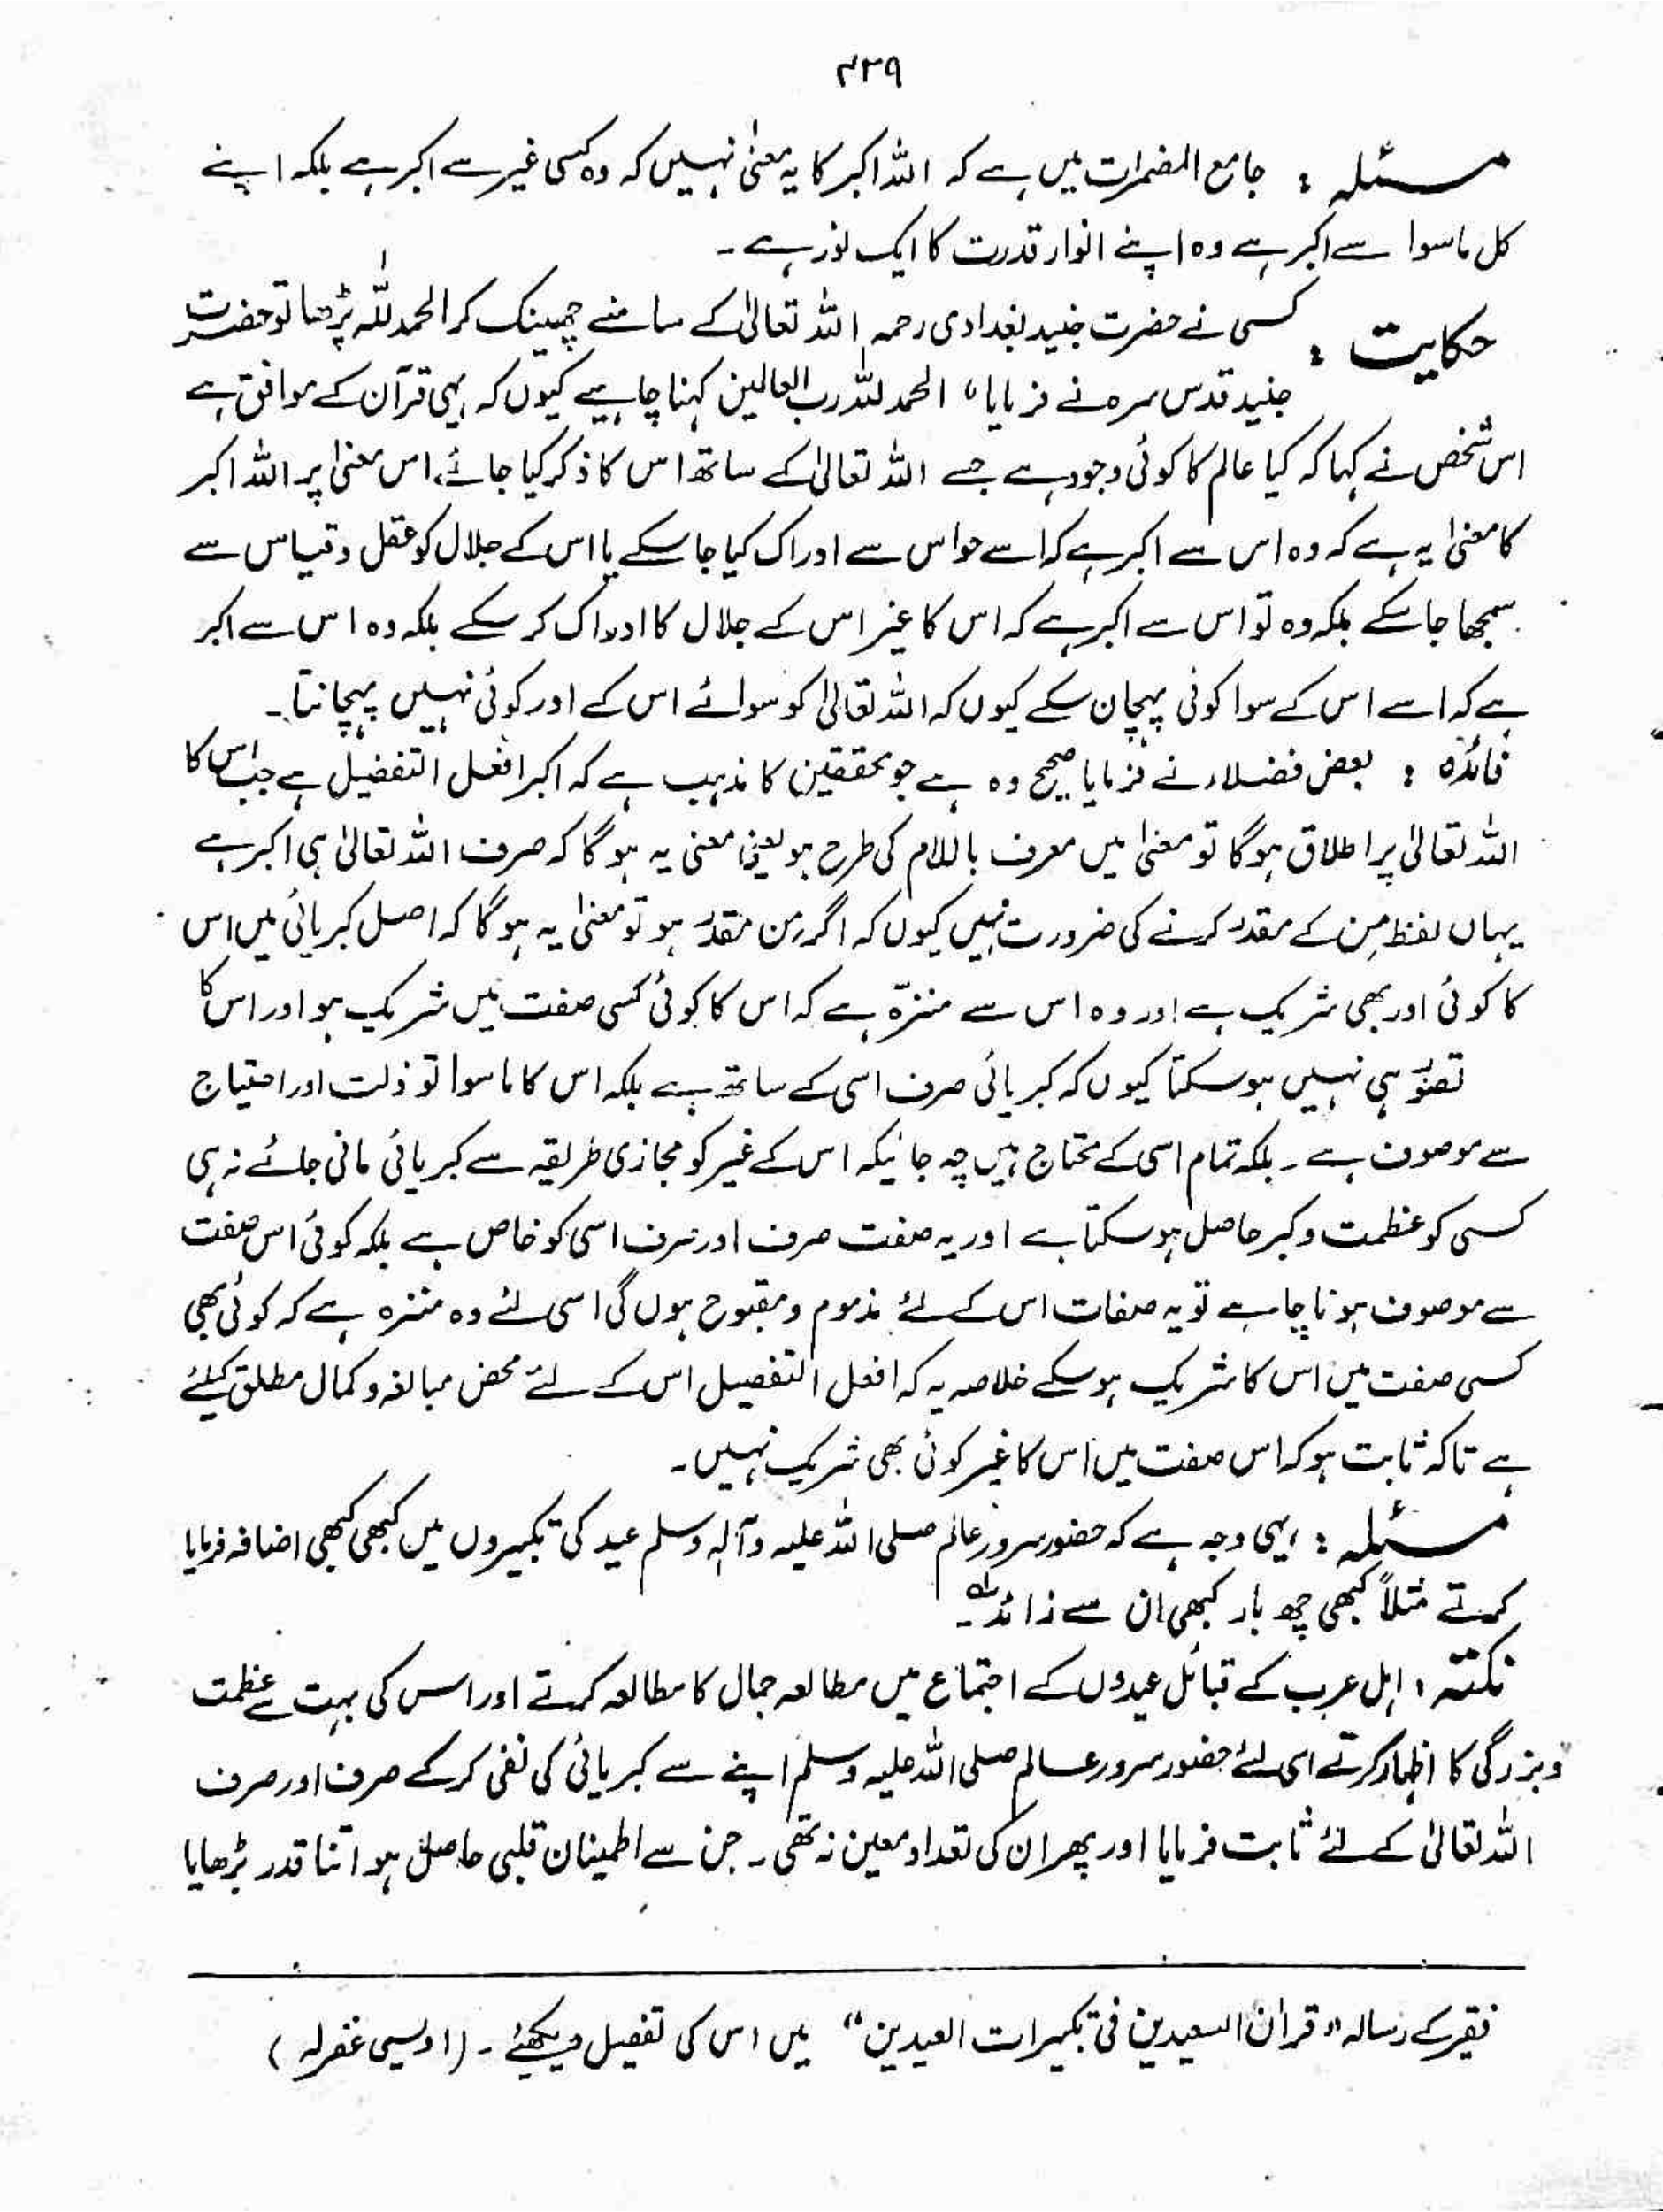 ۴۳۹
مسئلہ : جامع المضمرات میں ہے کہ اللہ اکبر کا یہ معنیٰ نہیں کہ وہ کسی غیر سے اکبر ہے بلکہ اپنے
کل ماسوا سے اکبر ہے وہ اپنے انوار قدرت کا ایک نور ہے ۔
حکایت : کسی نے حضرت جنید بغدادی رحمہ اللہ تعالیٰ کے سامنے چھینک کر الحمد للہ پڑھا تو حضرت
جنید قدس سرہ نے فرمایا " الحمد للہ رب العالمین کہنا چاہیے کیوں کہ یہی قرآن کے موافق ہے
اس شخص نے کہا کہ کیا عالم کا کوئی وجود ہے جسے اللہ تعالیٰ کے ساتھ اس کا ذکر کیا جائے، اس معنیٰ پر اللہ اکبر
کا معنیٰ یہ ہے کہ وہ اس سے اکبر ہے کہ اسے حواس سے ادراک کیا جا سکے یا اس کے جلال کو عقل و قیاس سے
سمجھا جا سکے بلکہ وہ تو اس سے اکبر ہے کہ اس کا غیر اس کے جلال کا ادراک کر سکے بلکہ وہ اس سے اکبر
ہے کہ اسے اس کے سوا کوئی پہچان سکے کیوں کہ اللہ تعالیٰ کو سوائے اس کے اور کوئی نہیں پہچانتا ۔
فائدہ : بعض فضلاء نے فرمایا صحیح وہ ہے جو محققین کا مذہب ہے کہ اکبر افعل التفضیل ہے جب اس کا
اللہ تعالیٰ پر اطلاق ہوگا تو معنیٰ میں معرف باللام کی طرح ہو یعنی معنی یہ ہو گا کہ صرف اللہ تعالیٰ ہی اکبر ہے
یہاں لفظ مِن کے مقدر کرنے کی ضرورت نہیں کیوں کہ اگر مِن مقدر ہو تو معنیٰ یہ ہو گا کہ اصل کبریائی میں اس
کا کوئی اور بھی شریک ہے اور وہ اس سے منزّہ ہے کہ اس کا کوئی کسی صفت میں شریک ہو اور اس کا
تصوّر ہی نہیں ہو سکتا کیوں کہ کبریائی صرف اسی کے ساتھ ہے بلکہ اس کا ماسوا تو ذلت اور احتیاج
سے موصوف ہے ۔ بلکہ تمام اسی کے محتاج ہیں چہ جائیکہ اس کے غیر کو مجازی طریقہ سے کبریائی مانی جائے نہ ہی
کسی کو عظمت و کبر حاصل ہو سکتا ہے اور یہ صفت صرف اور صرف اسی کو خاص ہے بلکہ کوئی اس صفت
سے موصوف ہونا چاہے تو یہ صفات اس کے لئے مذموم و مقبوح ہوں گی اسی لئے وہ منزہ ہے کہ کوئی بھی
کسی صفت میں اس کا شریک ہو سکے خلاصہ یہ کہ افعل التفصیل اس کے لئے محض مبالغہ و کمال مطلق کیلئے
ہے تاکہ ثابت ہو کہ اس صفت میں اس کا غیر کوئی بھی شریک نہیں ۔
مسئلہ : یہی وجہ ہے کہ حضور سرور عالم صلی اللہ علیہ وآلہ وسلم عید کی تکبیروں میں کبھی کبھی اضافہ فرمایا
کرتے مثلاً کبھی چھ بار کبھی ان سے زائد ۔
نکتہ : اہل عرب کے قبائل عیدوں کے اجتماع میں مطالعہ جمال کا مطالعہ کرتے اور اس کی بہت سے عظمت
و بزرگی کا اظہار کرتے اسی لئے حضور سرور عالم صلی اللہ علیہ وسلم اپنے سے کبریائی کی نفی کر کے صرف اور صرف
اللہ تعالیٰ کے لئے ثابت فرمایا اور پھر ان کی تعداد معین نہ تھی ۔ جن سے اطمینان قلبی حاصل ہو اتنا قدر بڑھایا
فقیر کے رسالہ " قران السعیدین فی تکبیرات العیدین " میں اس کی تفصیل دیکھئے ۔ (اویسی غفرلہ)